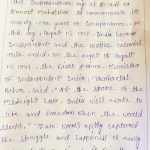 this Independence day at
to commemorate its
seventy five years of Independence. on
this day August 15 1947, India became
Independent and the British colonial
rule ended on the night of August
15 1947, the first prime Minister
of Independent India, Jawaharlal
Nehru said "At the stroke of the
Midnight hour India will awake to
life and freedom when the world
sleeps." These words aptly captured
the struggle and happiness of newly